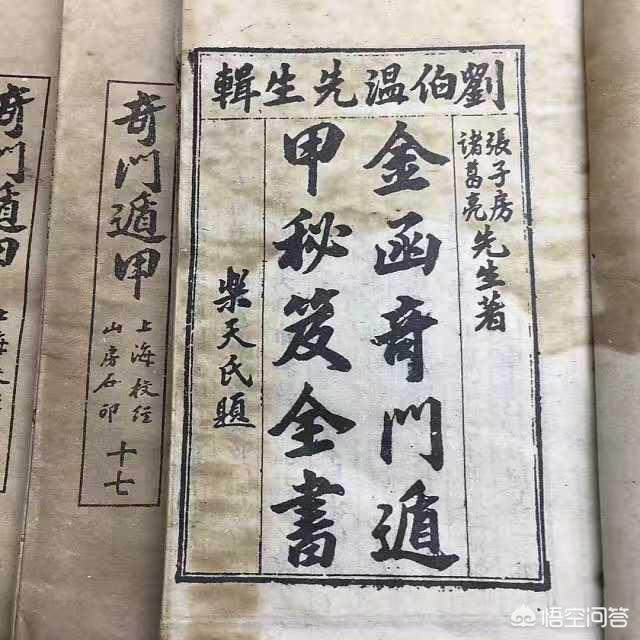 劉伯温先生輯
張子房
諸葛亮
先生著
金函奇門遁
甲秘笈全書
樂天氏題
奇門遁甲
上海校經
山房石印
十七
奇門遁甲
悟空问答